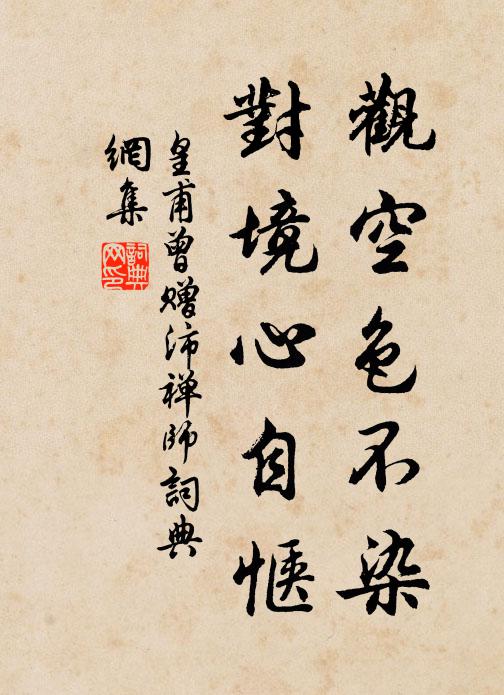 觀空色不染
對境心自愜
皇甫曾贈沛禅師詞典
網集
詞典
网印